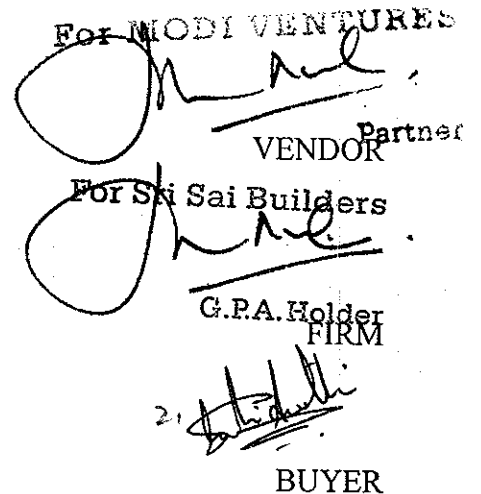 For MODI VENTURES
Partner
VENDOR
For Sri Sai Builders
G.P.A. Holder
FIRM
2.
BUYER